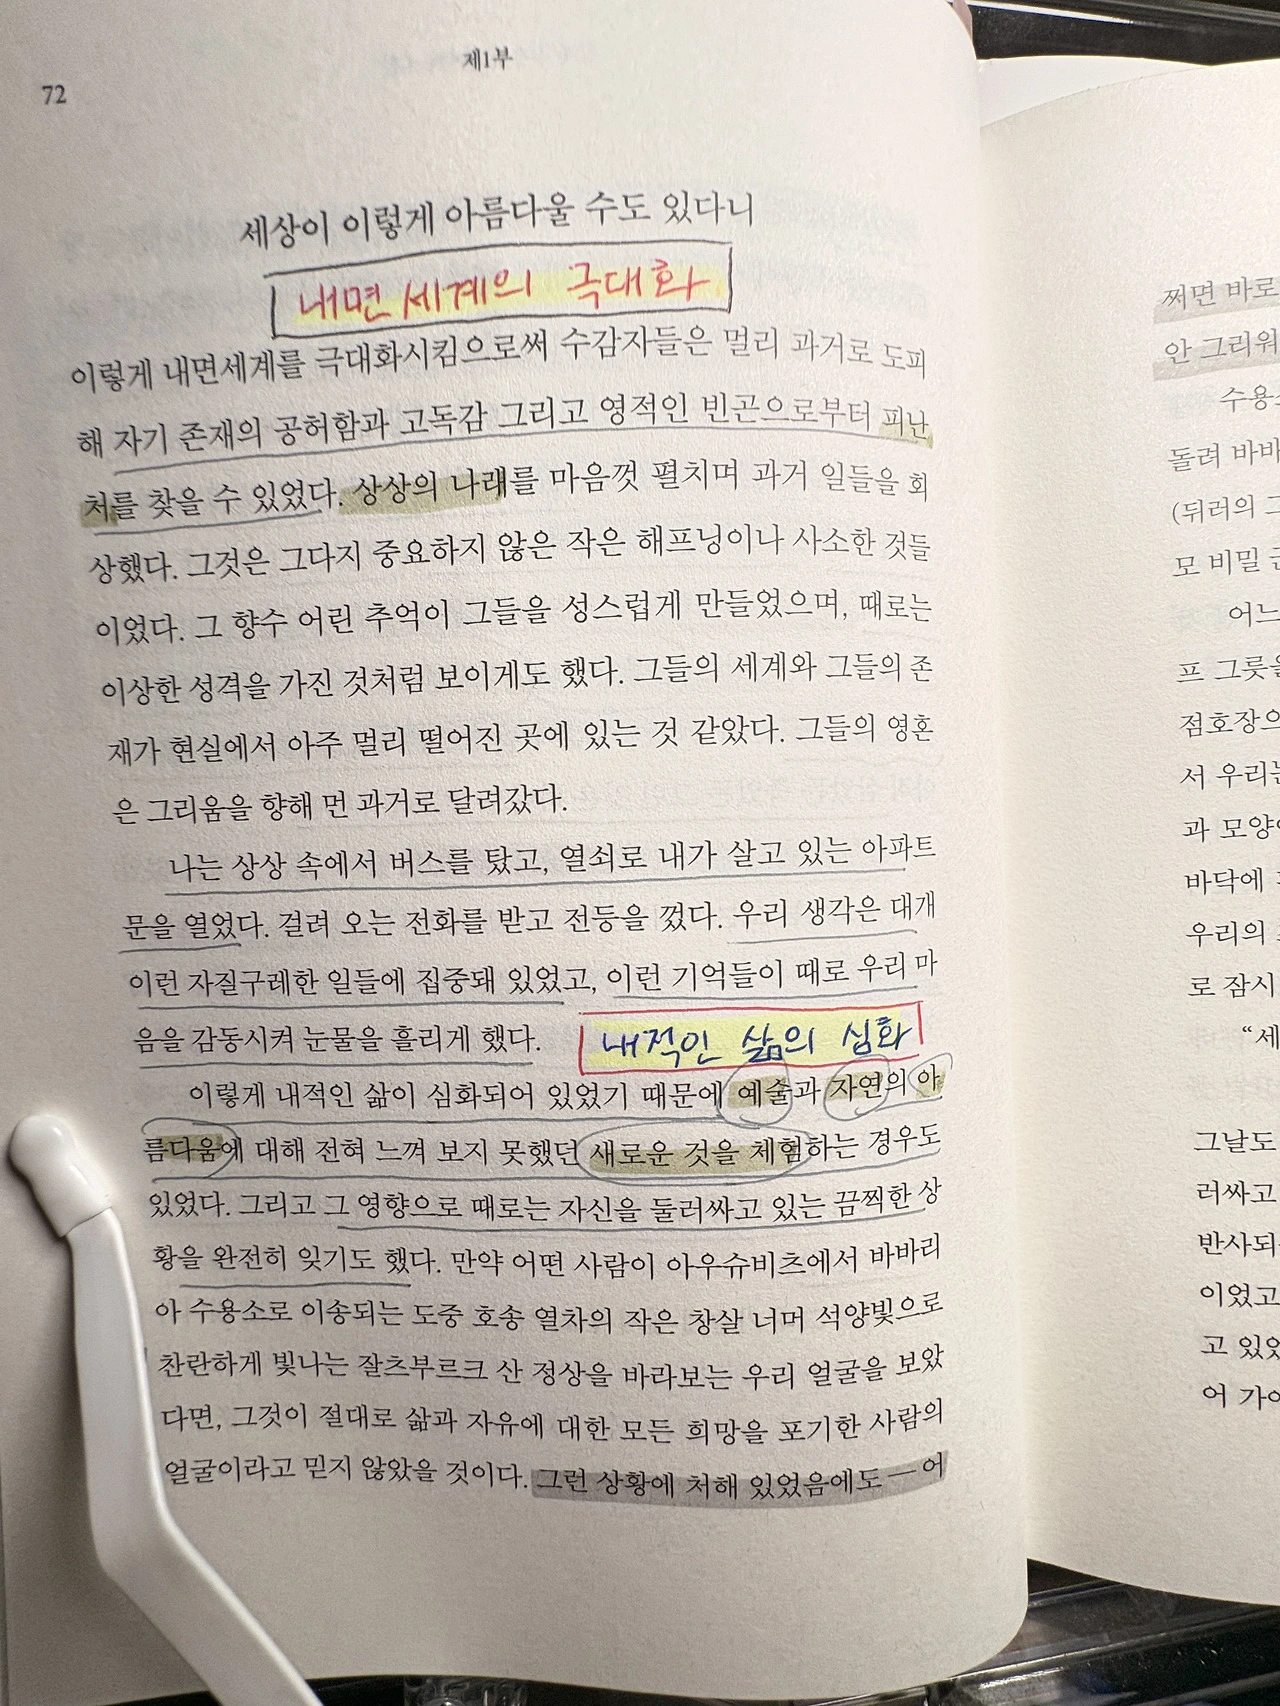 제1부
72
세상이 이렇게 아름다울 수도 있다니
내면 세계의 극대화
이렇게 내면세계를 극대화시킴으로써 수감자들은 멀리 과거로 도피
해 자기 존재의 공허함과 고독감 그리고 영적인 빈곤으로부터 피난
처를 찾을 수 있었다. 상상의 나래를 마음껏 펼치며 과거 일들을 회
상했다. 그것은 그다지 중요하지 않은 작은 해프닝이나 사소한 것들
이었다. 그 향수 어린 추억이 그들을 성스럽게 만들었으며, 때로는
이상한 성격을 가진 것처럼 보이게도 했다. 그들의 세계와 그들의 존
재가 현실에서 아주 멀리 떨어진 곳에 있는 것 같았다. 그들의 영혼
은 그리움을 향해 먼 과거로 달려갔다.
나는 상상 속에서 버스를 탔고, 열쇠로 내가 살고 있는 아파트
문을 열었다. 걸려 오는 전화를 받고 전등을 껐다. 우리 생각은 대개
이런 자질구레한 일들에 집중돼 있었고, 이런 기억들이 때로 우리 마
음을 감동시켜 눈물을 흘리게 했다.
내적인 삶의 심화
이렇게 내적인 삶이 심화되어 있었기 때문에 예술과 자연의 아
름다움에 대해 전혀 느껴 보지 못했던 새로운 것을 체험하는 경우도
있었다. 그리고 그 영향으로 때로는 자신을 둘러싸고 있는 끔찍한 상
황을 완전히 잊기도 했다. 만약 어떤 사람이 아우슈비츠에서 바바리
아 수용소로 이송되는 도중 호송 열차의 작은 창살 너머 석양빛으로
찬란하게 빛나는 잘츠부르크 산 정상을 바라보는 우리 얼굴을 보았
다면, 그것이 절대로 삶과 자유에 대한 모든 희망을 포기한 사람의
얼굴이라고 믿지 않았을 것이다. 그런 상황에 처해 있었음에도 — 어
쩌면 바로
안 그리워
수용
돌려 바바
(뒤러의 그
모 비밀
어느
프 그릇을
점호장으
서 우리는
과 모양
바닥에
우리의
로 잠시
“세
그날도
러싸고
반사되
이었고
고 있었
어 가